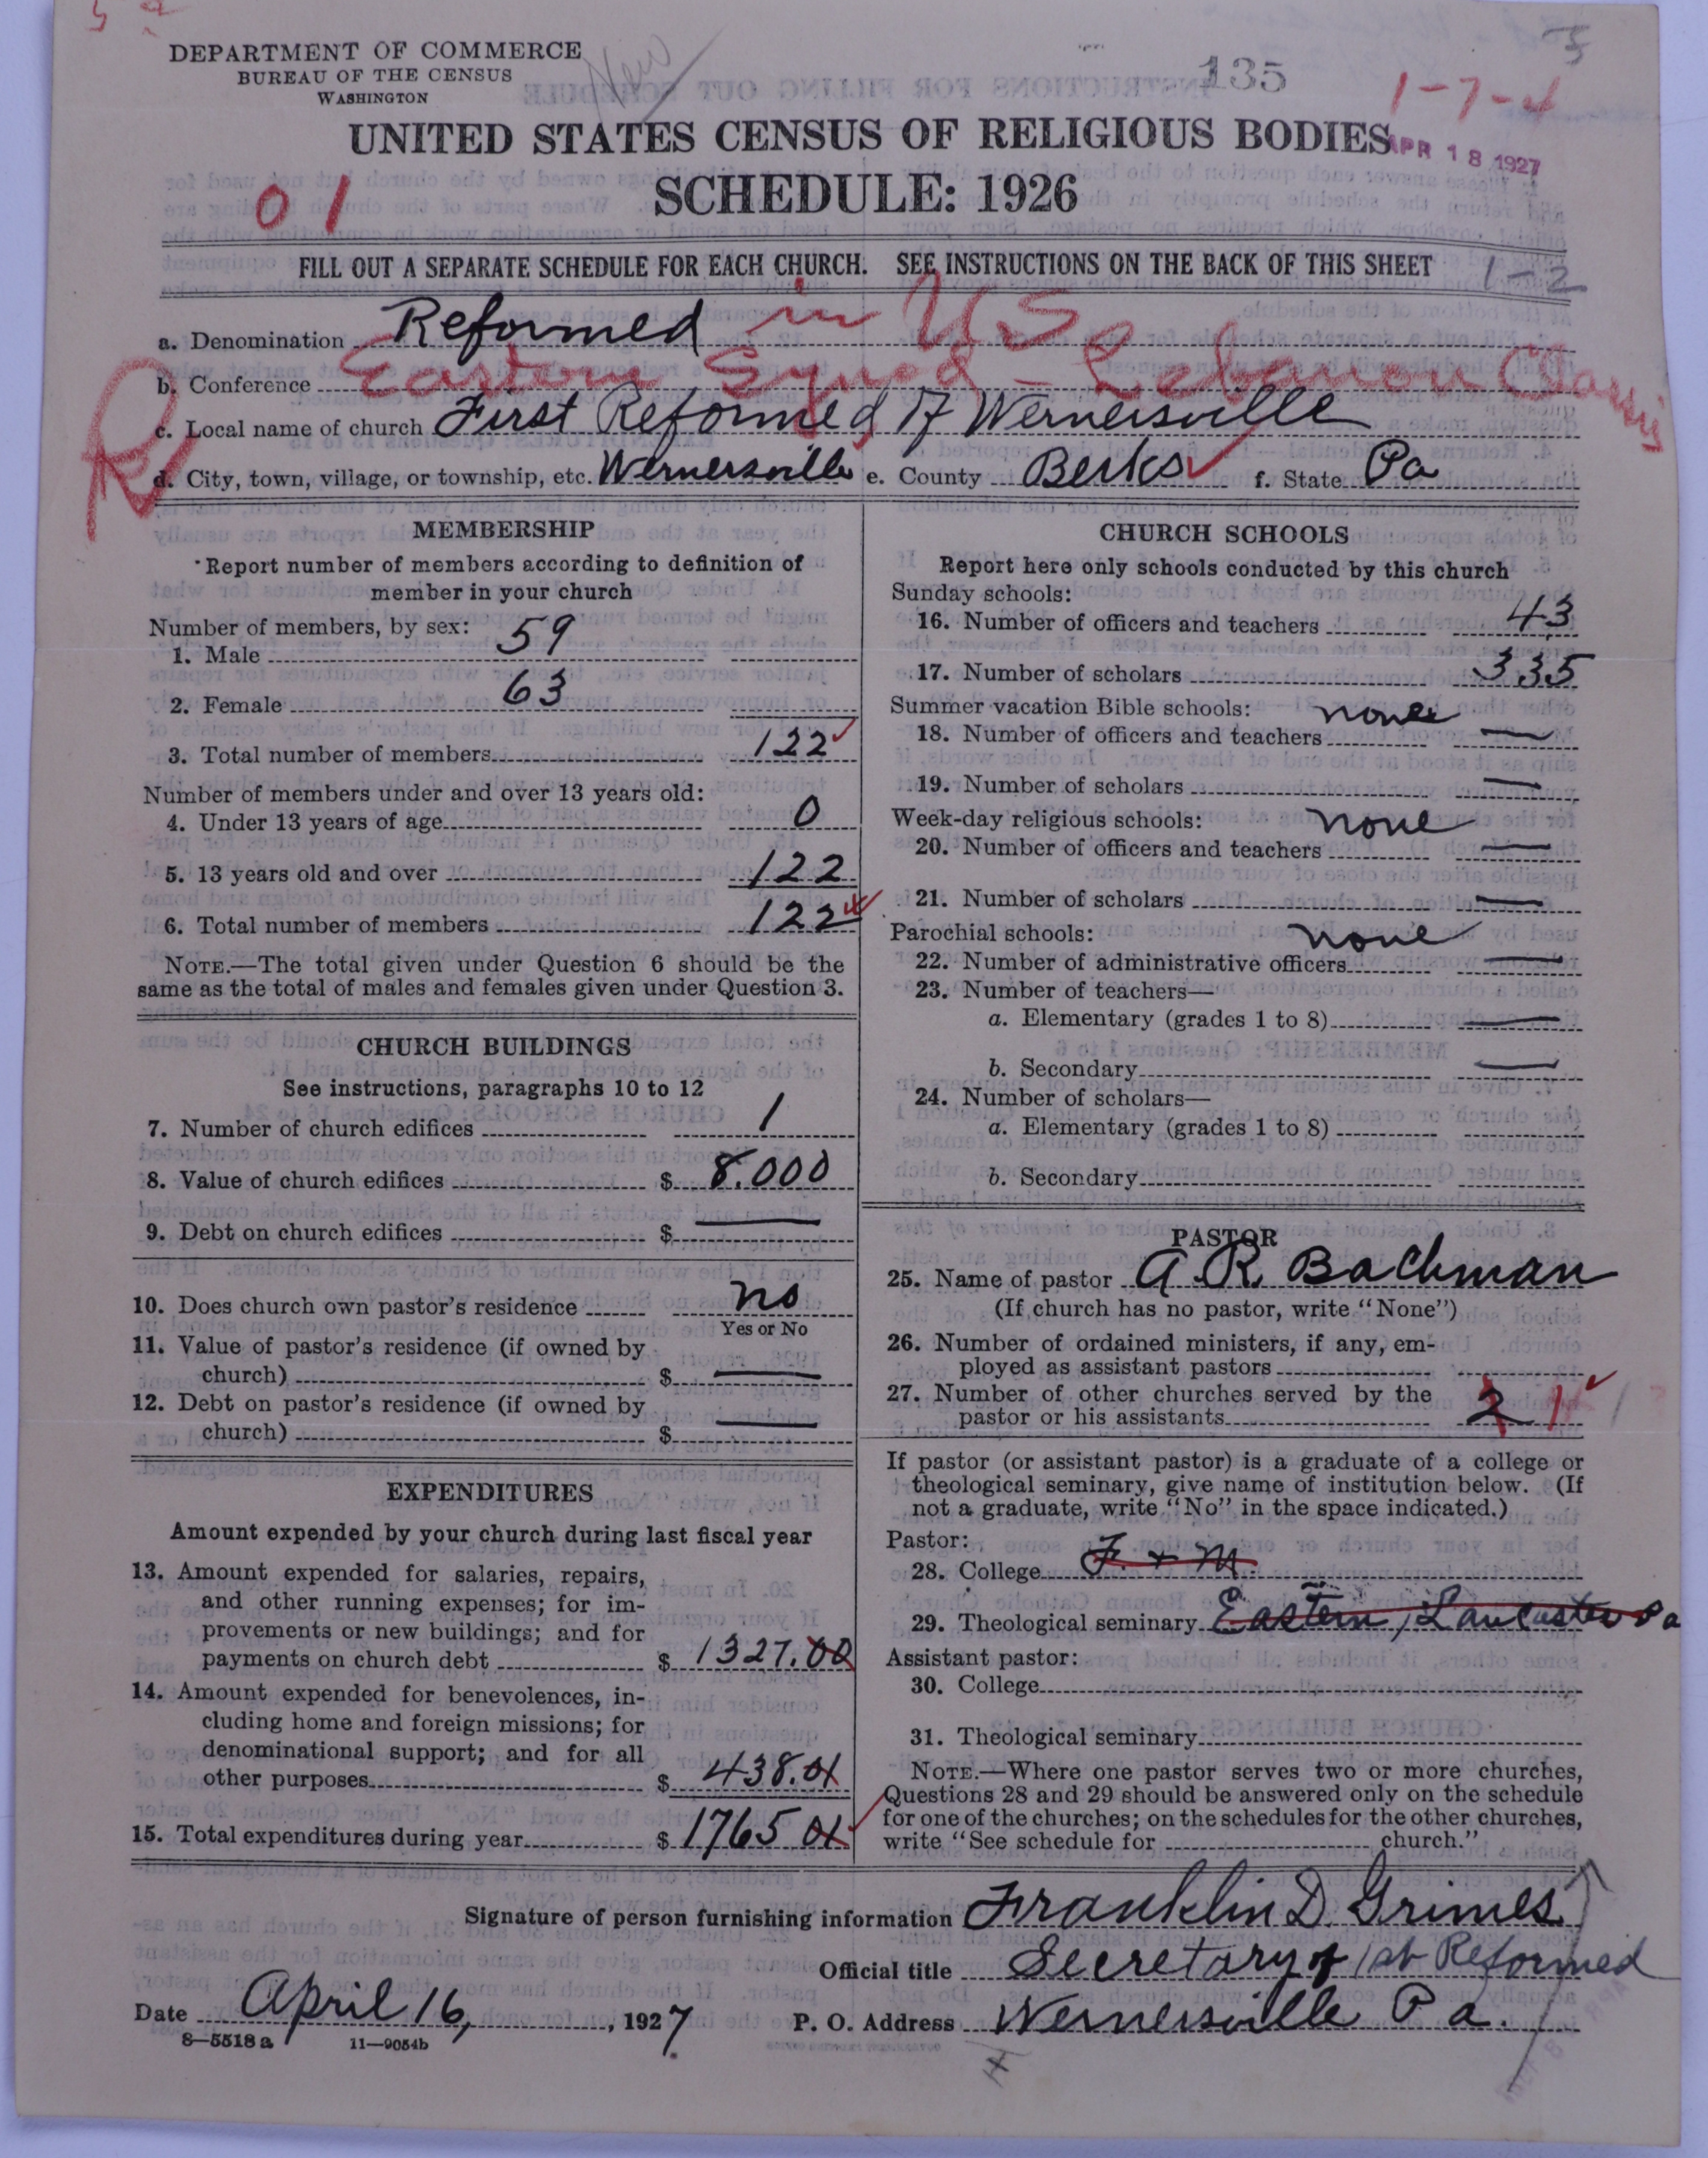 DEPARTMENT OF COMMERCE
BUREAU OF THE CENSUS
WASHINGTON
New
135
1-7-4
UNITED STATES CENSUS OF RELIGIOUS BODIES
APR 18 1927
SCHEDULE: 1926
01
FILL OUT A SEPARATE SCHEDULE FOR EACH CHURCH. SEE INSTRUCTIONS ON THE BACK OF THIS SHEET
1-2
a. Denomination Reformed in U S
b. Conference Eastern Synod - Lebanon Classis
c. Local name of church First Reformed of Wernersville
d. City, town, village, or township, etc. Wernersville e. County Berks f. State Pa
MEMBERSHIP
Report number of members according to definition of
member in your church
Number of members, by sex:
1. Male 59
2. Female 63
3. Total number of members 122
Number of members under and over 13 years old:
4. Under 13 years of age 0
5. 13 years old and over 122
6. Total number of members 122
NOTE.—The total given under Question 6 should be the
same as the total of males and females given under Question 3.
CHURCH BUILDINGS
See instructions, paragraphs 10 to 12
7. Number of church edifices 1
8. Value of church edifices $ 8.000
9. Debt on church edifices $ —
10. Does church own pastor's residence no
Yes or No
11. Value of pastor's residence (if owned by
church) $ —
12. Debt on pastor's residence (if owned by
church) $ —
EXPENDITURES
Amount expended by your church during last fiscal year
13. Amount expended for salaries, repairs,
and other running expenses; for im-
provements or new buildings; and for
payments on church debt $ 1327.00
14. Amount expended for benevolences, in-
cluding home and foreign missions; for
denominational support; and for all
other purposes $ 438.01
15. Total expenditures during year $ 1765 01
CHURCH SCHOOLS
Report here only schools conducted by this church
Sunday schools:
16. Number of officers and teachers 43
17. Number of scholars 335
Summer vacation Bible schools: none
18. Number of officers and teachers —
19. Number of scholars —
Week-day religious schools: none
20. Number of officers and teachers —
21. Number of scholars —
Parochial schools: none
22. Number of administrative officers —
23. Number of teachers—
a. Elementary (grades 1 to 8) —
b. Secondary —
24. Number of scholars—
a. Elementary (grades 1 to 8)
b. Secondary
PASTOR
25. Name of pastor A. R. Bachman
(If church has no pastor, write "None")
26. Number of ordained ministers, if any, em-
ployed as assistant pastors
27. Number of other churches served by the
pastor or his assistants 2 1
If pastor (or assistant pastor) is a graduate of a college or
theological seminary, give name of institution below. (If
not a graduate, write "No" in the space indicated.)
Pastor:
28. College F. + M.
29. Theological seminary Eastern, Lancaster Pa
Assistant pastor:
30. College
31. Theological seminary
NOTE.—Where one pastor serves two or more churches,
Questions 28 and 29 should be answered only on the schedule
for one of the churches; on the schedules for the other churches,
write "See schedule for church."
Signature of person furnishing information Franklin D. Grimes
Official title Secretary of 1st Reformed
Date April 16, 1927 P. O. Address Wernersville Pa.
8—5518a 11—9054b